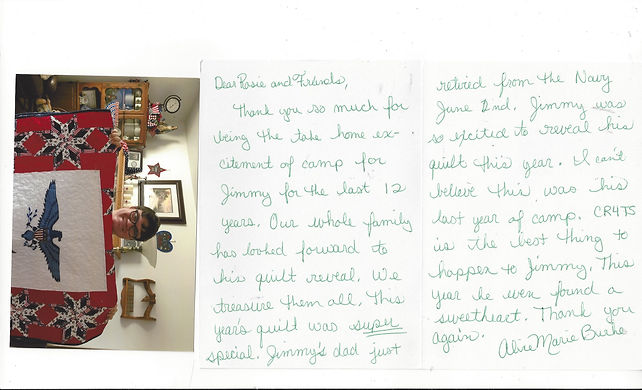 Dear Rosie and Friends,
Thank you so much for
being the take home ex-
citement of camp for
Jimmy for the last 12
years. Our whole family
has looked forward to
his quilt reveal. We
treasure them all. This
years quilt was super
special. Jimmy's dad just
retired from the Navy
June 2nd. Jimmy was
so excited to reveal his
quilt this year. I can't
believe this was his
last year of camp. CR4TS
is the best thing to
happen to Jimmy. This
year he even found a
sweetheart. Thank you
again.
Alice Marie Burke